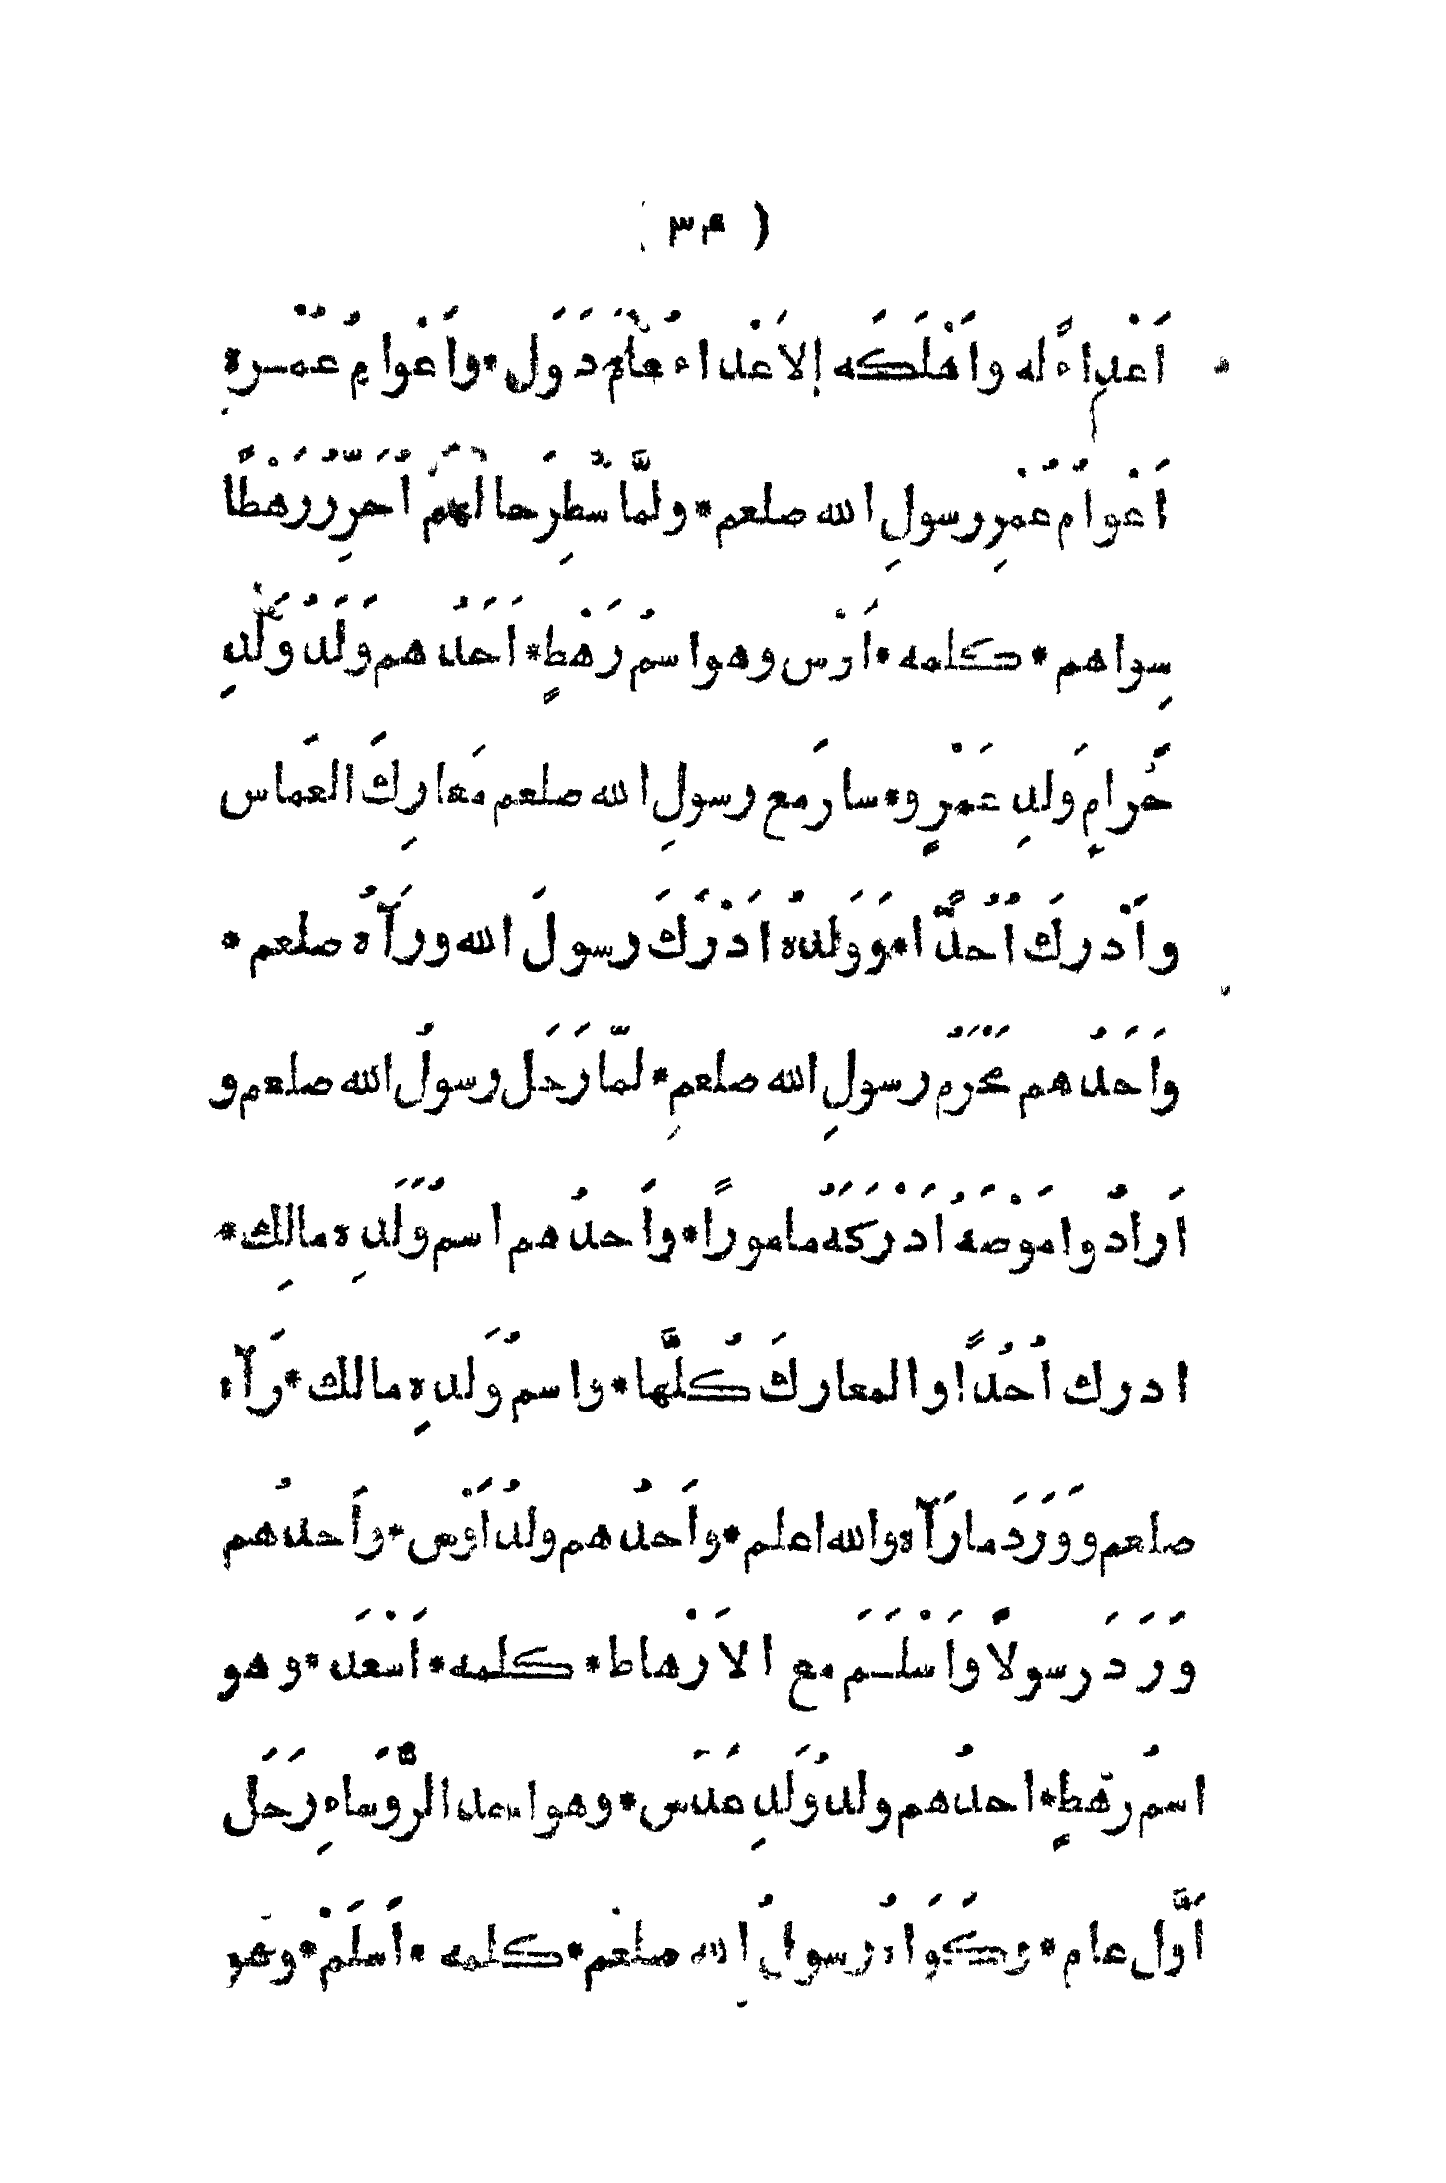 ( ٣٤ )
اَعْداءً له واَهْلَكَه إلاَعْداء عُلَمَ دَوَل * واَعْوامِ عُمْره
اَعْوامُ عُمْرِ رسولِ الله صلعم * ولمّا سُطِرَ حا لُهم اُحَرِّرُ رَهْطًا
سِواهم * كلمه * اَوْس وهو اسمُ رَهْطٍ * اَحَدُ هم وَلَدُ وَلَدِ
حَرامِ وَلدِ عَمْرٍو * سارَ مع رسولِ الله صلعم مَعارِكَ العَماس
واَدْرك اُحُدًا * وَوَلدُه اَدْرَكَ رسولَ الله ورَآهُ صلعم *
واَحَدُ هم مَحْرَمُ رسولِ الله صلعمِ * لمّا رَحَل رسولُ الله صلعم و
اَرادُ وا مَوْصَهُ اَدْرَكَهُ مامورًا * واَحدُ هم اسم وَلَدِه مالِك *
ادرك اُحُدًا والمعاركَ كُلَّها * واسم وَلدهِ مالك * رَآه
صلعم ووَرَدَ مارَآه والله اعلم * واَحدُ هم ولدُ اَوْس * واَحدُ هم
وَرَدَ رسولاً واَسْلَم مع الاَرْهاط * كلمه * اَسْعَد * وهو
اسمُ رَهطٍ * احدُ هم ولدُ وَلَدِ عَدَس * وهو اسعد الرُّوَساءِ رَحَل
اَوَّل عام * وكَوَاهُ رسولُ الله صلعم * كلمه * اَسْلَم * وهو